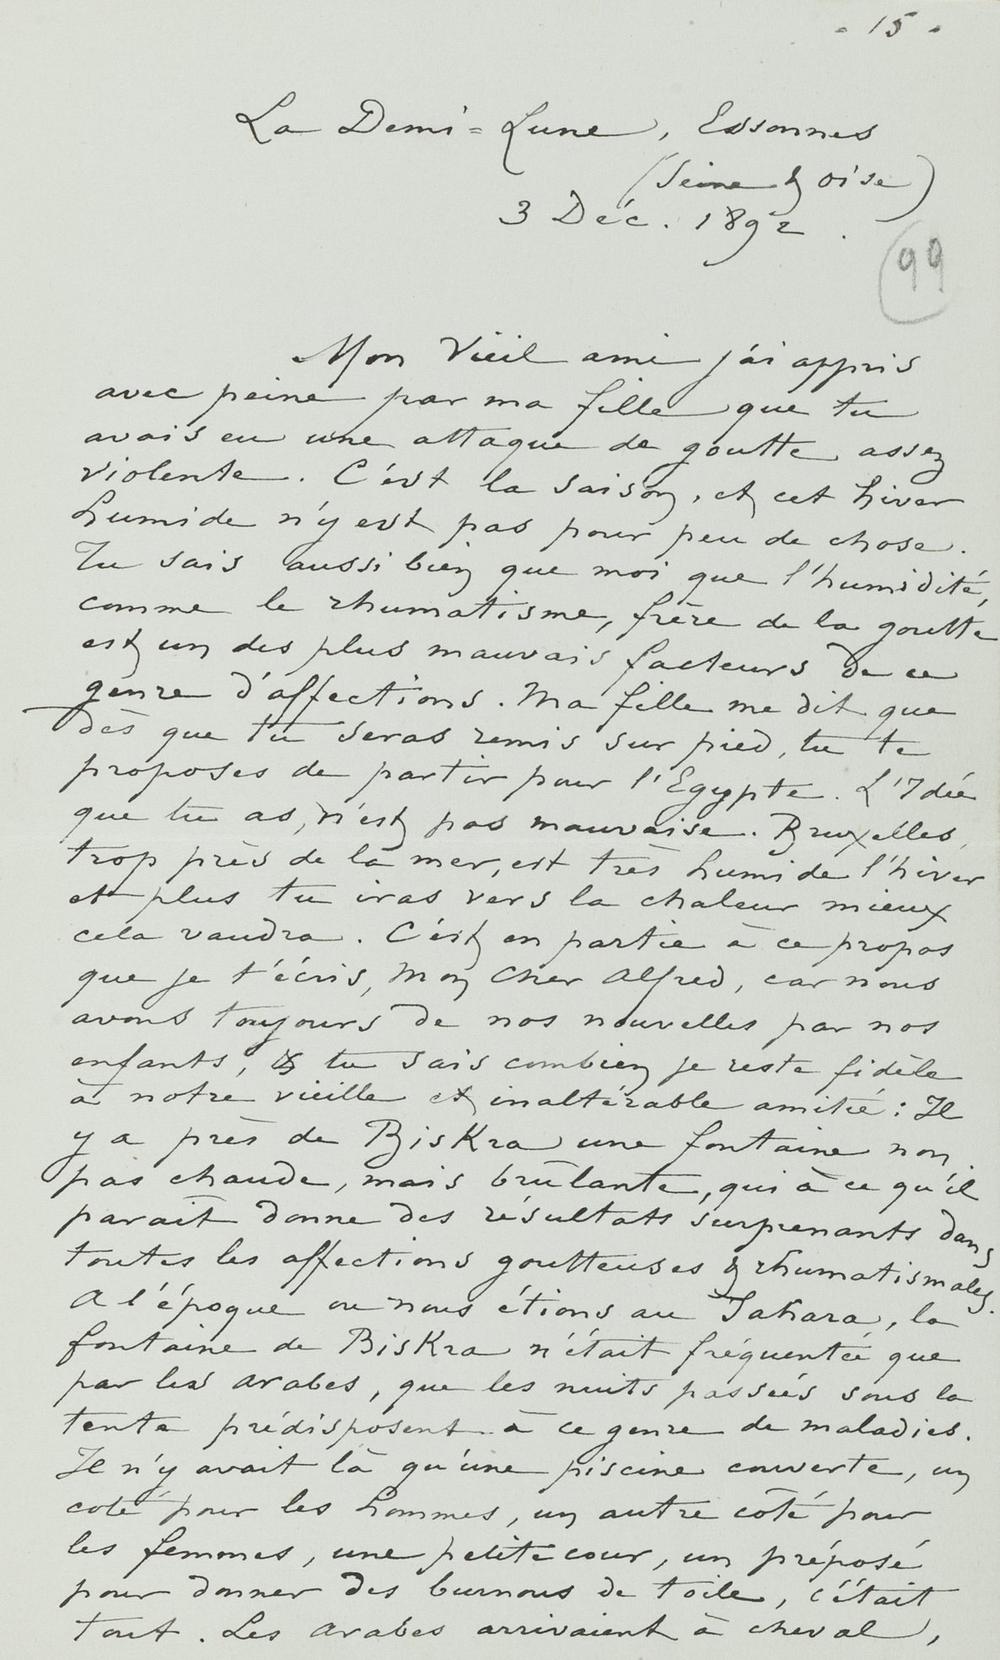 - 15 -
La Demi=Lune, Essonnes
(Seine & Oise)
3 Déc. 1892.
99
Mon Vieil ami j'ai appris
avec peine par ma fille que tu
avais eu une attaque de goutte assez
violente. C'est la saison, et cet hiver
humide n'y est pas pour peu de chose.
Tu sais aussi bien que moi que l'humidité,
comme le rhumatisme, frère de la goutte
est un des plus mauvais facteurs de ce
genre d'affections. Ma fille me dit que
dès que tu seras remis sur pied, tu te
proposes de partir pour l'Egypte. L'Idée
que tu as, n'est pas mauvaise. Bruxelles,
trop près de la mer, est très humide l'hiver
et plus tu iras vers la chaleur mieux
cela vaudra. C'est en partie à ce propos
que je t'écris, Mon Cher Alfred, car nous
avons toujours de nos nouvelles par nos
enfants, & tu sais combien je reste fidèle
à notre vieille et inaltérable amitié: Il
y a près de Biskra une fontaine non
pas chaude, mais brûlante, qui à ce qu'il
parait donne des résultats surprenants dans
toutes les affections goutteuses & rhumatismales.
A l'époque ou nous étions au Sahara, la
fontaine de Biskra n'était fréquentée que
par les arabes, que les nuits passées sous la
tente prédisposent à ce genre de maladies.
Il n'y avait là qu'une piscine couverte, un
coté pour les hommes, un autre côté pour
les femmes, une petite cour, un préposé
pour donner des burnous de toile, c'était
tout. Les arabes arrivaient à cheval,